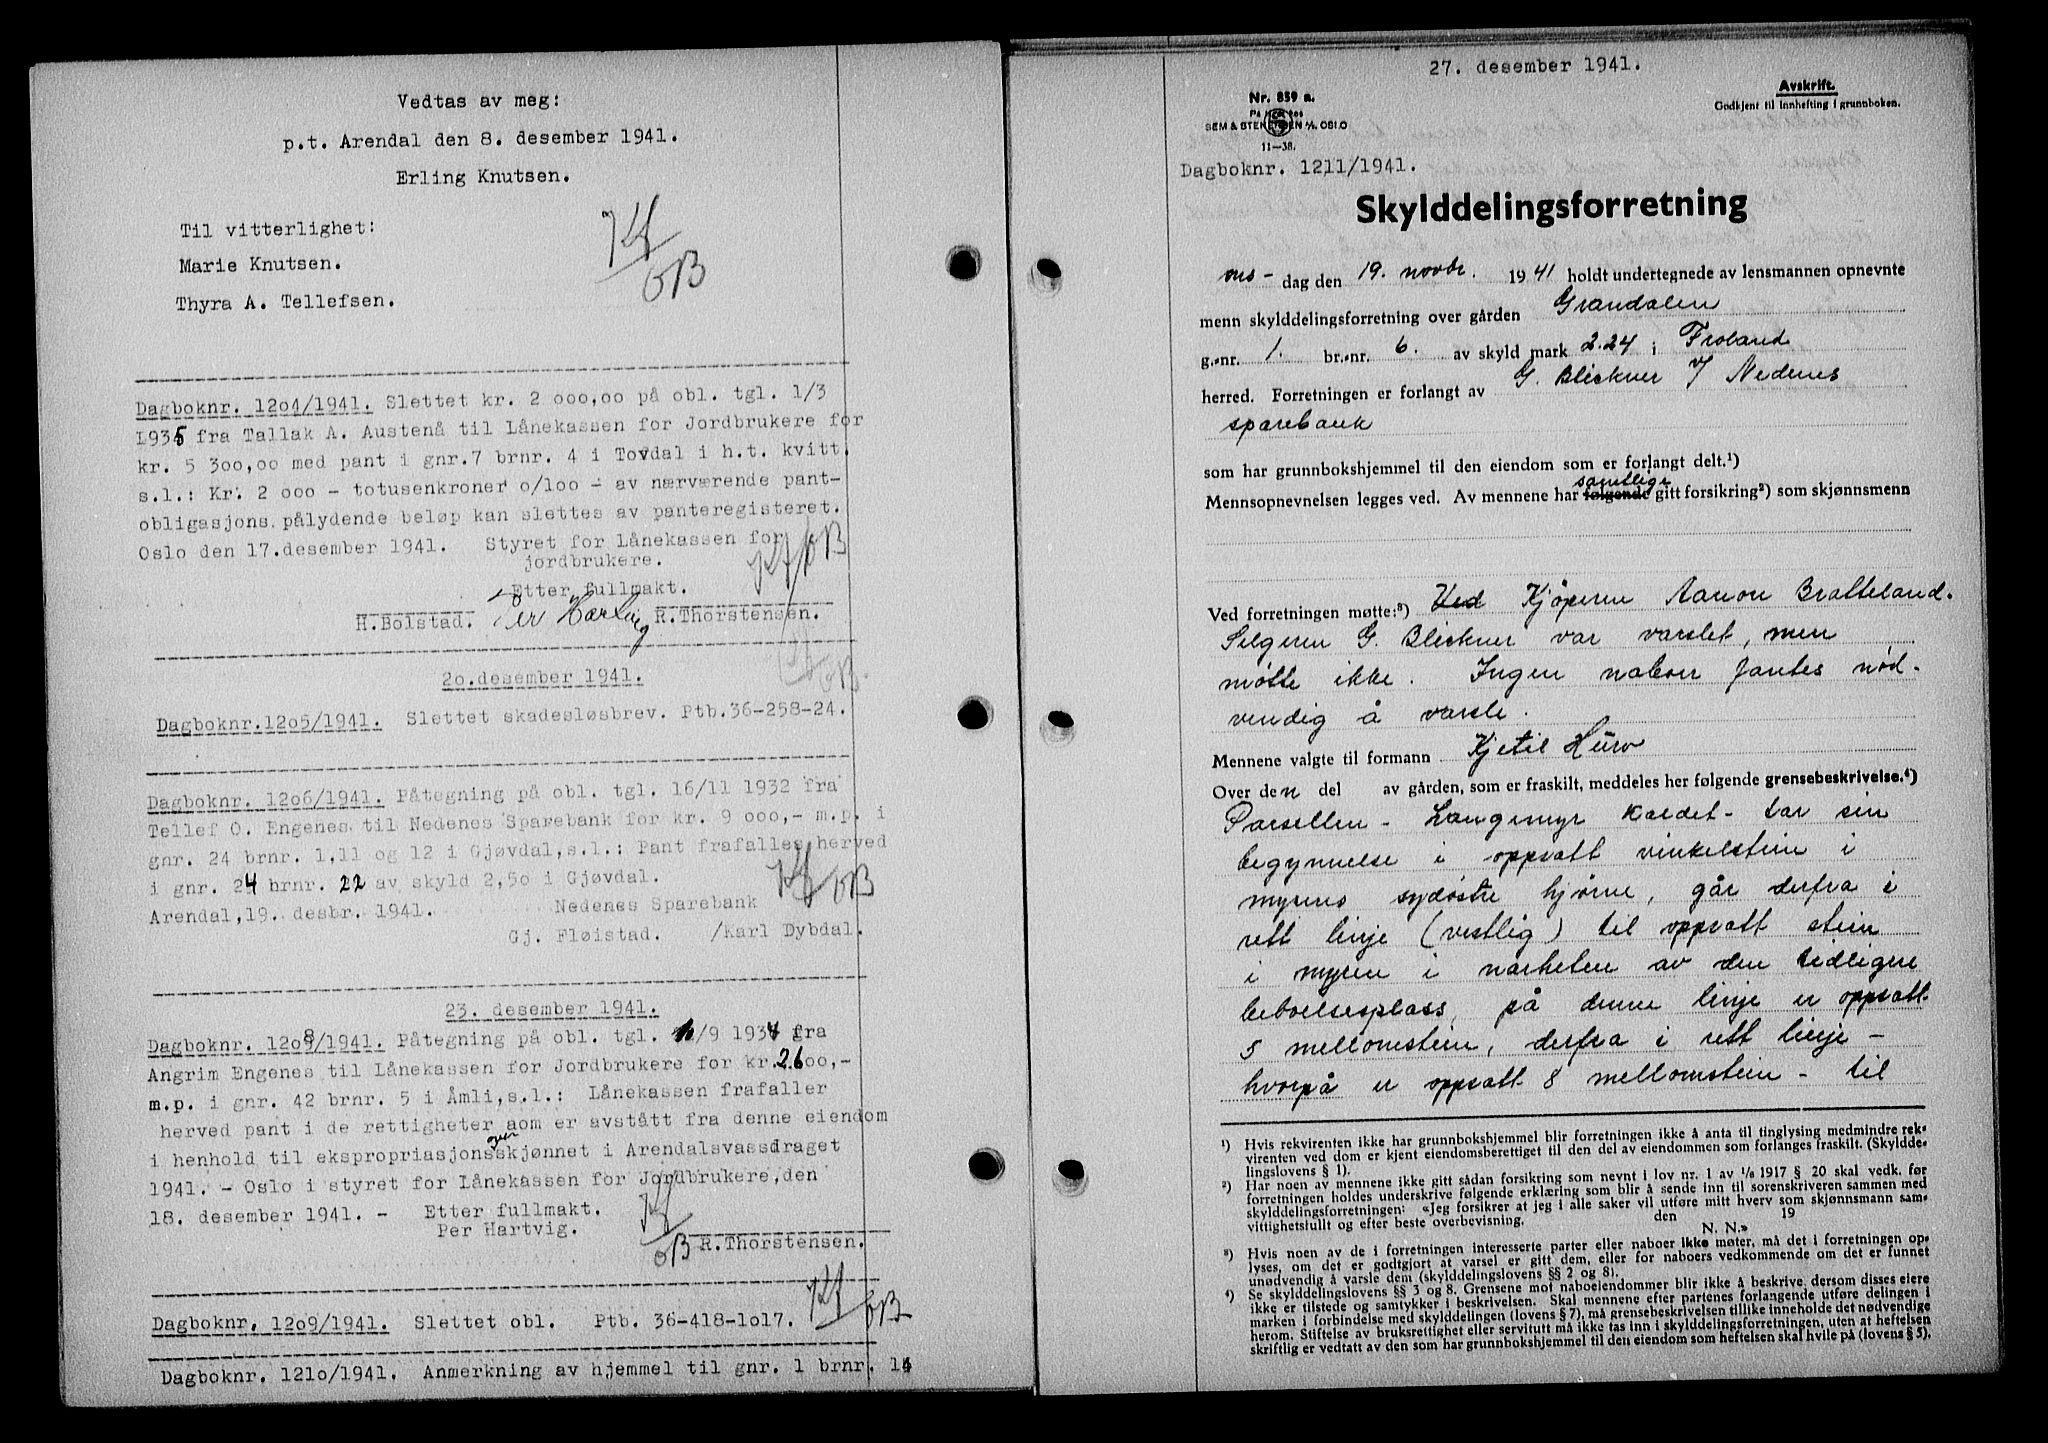 Vedtas av meg:
p.t. Arendal den 8. desember 1941.
Erling Knutsen.
Til vitterlighet:
Marie Knutsen.
Thyra A. Tellefsen.
Dagboknr. 12o4/1941. Slettet kr. 2 ooo,oo på obl. tgl. 1/3
1935 fra Tallak A. Austenå til Lånekassen for Jordbrukere for
kr. 5 3oo,oo med pant i gnr.7 brnr. 4 i Tovdal i h.t. kvitt.
s.l.: Kr. 2 ooo - totusenkroner o/1oo - av nærværende pant-
obligasjons pålydende beløp kan slettes av panteregisteret.
Oslo den 17.desember 1941. Styret for Lånekassen for
jordbrukere.
Etter fullmakt.
H.Bolstad. Per Hartvig R.Thorstensen.
2o.desember 1941.
Dagboknr.12o5/1941. Slettet skadesløsbrev. Ptb.36-258-24.
Dagboknr. 12o6/1941. Påtegning på obl. tgl. 16/11 1932 fra
Tellef O. Engenes til Nedenes Sparebank for kr. 9 ooo,- m.p. i
gnr. 24 brnr. 1,11 og 12 i Gjøvdal,s.l.: Pant frafalles herved
i gnr. 24 brnr. 22 av skyld 2,5o i Gjøvdal.
Arendal,19. desbr. 1941. Nedenes Sparebank
Gj. Fløistad. /Karl Dybdal.
23. desember 1941.
Dagboknr. 12o8/1941. Påtegning på obl. tgl. /9 1934 fra
Angrim Engenes til Lånekassen for Jordbrukere for kr.2600,-
m.p. i gnr. 42 brnr. 5 i Åmli,s.l.: Lånekassen frafaller
herved pant i de rettigheter aom er avstått fra denne eiendom
i henhold til ekspropriasjonsskjønnet over i Arendalsvassdraget
1941. - Oslo i styret for Lånekassen for Jordbrukere,den
18. desember 1941. - Etter fullmakt.
Per Hartvig.
R.Thorstensen.
Dagboknr. 12o9/1941. Slettet obl. Ptb. 36-418-1o17.
Dagboknr. 121o/1941. Anmerkning av hjemmel til gnr. 1 brnr. 14
27. desember 1941.
Nr. 859 a.
SEM & STENERSEN A/S OSLO
11—38.
Avskrift.
Godkjent til innhefting i grunnboken.
Dagboknr. 1211/1941.
Skylddelingsforretning
ons- dag den 19. novbr. 1941 holdt undertegnede av lensmannen opnevnte
menn skylddelingsforretning over gården Grandalen
g.-nr. 1. br.-nr. 6. av skyld mark 2.24 i Froland
herred. Forretningen er forlangt av G. Blickner / Nedenes
sparebank
som har grunnbokshjemmel til den eiendom som er forlangt delt.¹)
Mennsopnevnelsen legges ved. Av mennene har følgende samtlige gitt forsikring²) som skjønnsmenn
Ved forretningen møtte:³) Ved Kjøperen Aanon Bratteland.
Selgeren G. Blickner var varslet, men
møtte ikke. Ingen naboer fantes nød-
vendig å varsle.
Mennene valgte til formann Kjetil Hurv
Over den del av gården, som er fraskilt, meddeles her følgende grensebeskrivelse.⁴)
Parsellen - Langemyr kaldet - tar sin
begynnelse i oppsatt vinkelstein i
myrens sydøstre hjørne, går derfra i
rett linje (vestlig) til oppsatt stein
i myren i nærheten av den tidligere
beboelsesplass, på denne linje er oppsatt
5 mellomstein, derfra i rett linje -
hvorpå er oppsatt 8 mellomstein - til
¹) Hvis rekvirenten ikke har grunnbokshjemmel blir forretningen ikke å anta til tinglysing medmindre rek-
virenten ved dom er kjent eiendomsberettiget til den del av eiendommen som forlanges fraskilt. (Skyldde-
lingslovens § 1).
²) Har noen av mennene ikke gitt sådan forsikring som nevnt i lov nr. 1 av 1/6 1917 § 20 skal vedk. før
forretningen holdes underskrive følgende erklæring som blir å sende inn til sorenskriveren sammen med
skylddelingsforretningen: «Jeg forsikrer at jeg i alle saker vil utføre mitt hverv som skjønnsmann sam-
vittighetsfullt og efter beste overbevisning. den 19
N. N.»
³) Hvis noen av de i forretningen interesserte parter eller naboer ikke møter, må det i forretningen op-
lyses, om det er godtgjort at varsel er gitt dem, eller for naboers vedkommende om det er funnet
unødvendig å varsle dem (skylddelingslovens §§ 2 og 8).
⁴) Se skylddelingslovens §§ 3 og 8. Grensene mot naboeiendommer blir ikke å beskrive, dersom disses eiere
ikke er tilstede og samtykker i beskrivelsen. Skal mennene efter partenes forlangende utføre delingen i
marken i forbindelse med skylddelingen (lovens § 7), må grensebeskrivelsen tillike inneholde det nødvendige
herom. Stiftelse av bruksrettighet eller servitutt må ikke tas inn i skylddelingsforretningen, uten at heftelsen
skriftlig er vedtatt av den som har grunnbokshjemmel til den eiendom som heftelsen skal hvile på (lovens § 5).